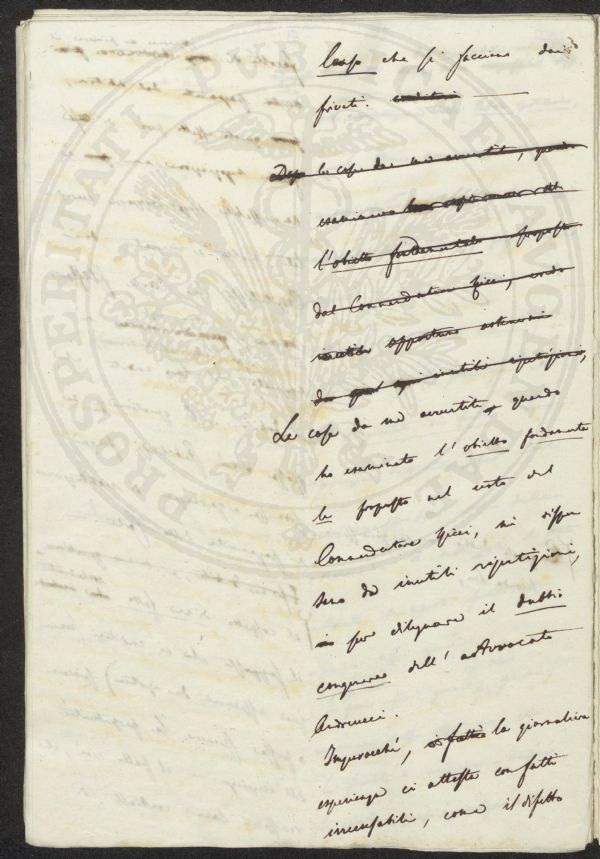 che si facciano dai
privati.
Dopo le cose da me avvertite, quando
esaminava
l'obietto fondamentale proposto
dal Commendatore Spici, credo
inutile opportuno astenermi
da inutili ripetizioni,
Le cose da me avvertite quando
ho esaminato l'obietto fondamenta
le proposto nel voto del
Commendatore Spici, mi dispen
sano da inutili ripetizioni,
per dileguare il dubbio
congenere dell'Avvocato
Andreucci.
Imperocchè, la giornaliera
esperienza ci attesta con fatti
irrecusabili, come il difetto
PROSPERITATI PUBLICAE AUGENDAE